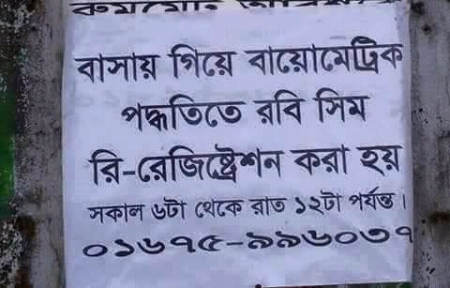 বাসায় গিয়ে বায়োমেট্রিক
পদ্ধতিতে রবি সিম
রি-রেজিষ্ট্রেশন করা হয়
সকাল ৬টা থেকে রাত ১২টা পর্যন্ত।
০১৬৭৫-৯৯৬০৩৭